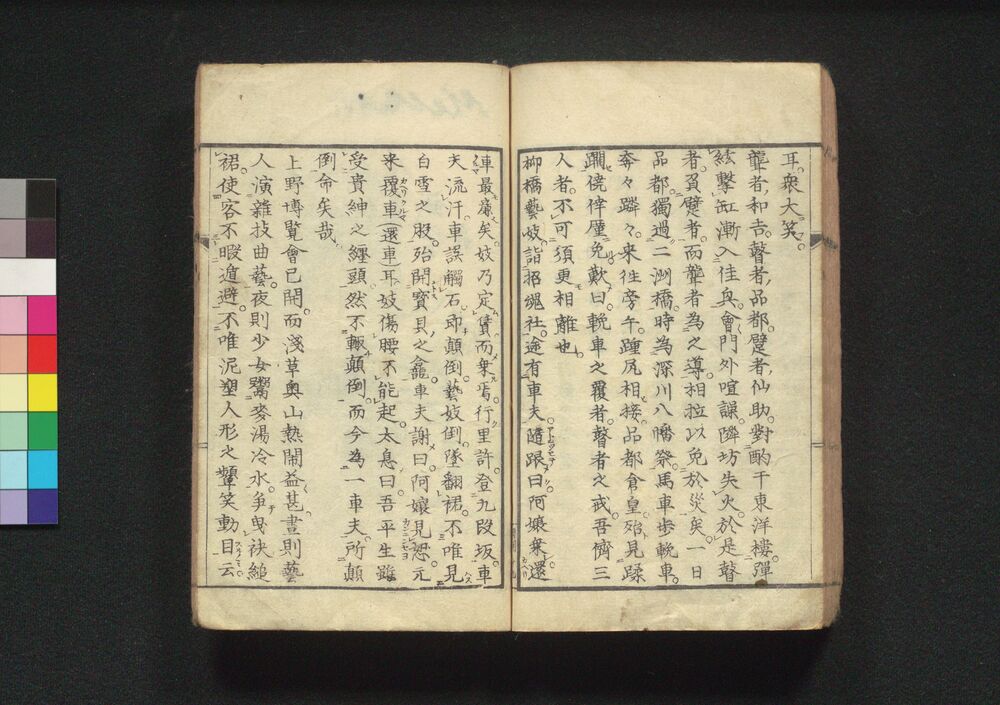 耳。衆大笑。
聾者、和吉。瞽者、品都。躄者、仙助。對酌于東洋樓。彈
絃擊缸漸入佳興。會門外喧譟。隣坊失火。於是瞽
者。負躄者。而聾者為之導。相拉以免於災矣。一日
品都。獨過二洲橋。時為深川八幡祭。馬車步輓車。
奔々轔々。来往旁午。踵尻相接。品都倉皇。殆見蹂
躙。僥倖僅免。歎曰。輓車之覆者。瞽者之戒。吾儕三
人者。不可須更相離也。
柳橋藝妓。詣招魂社。途有車夫。隨跟曰。阿嬢乗還
車最廉矣。妓乃定賃而乗焉。行里許。登九段坂。車
夫流汗。車誤觸石。即顛倒。藝妓倒墜翻裙。不唯見
白雪之股。殆開寶貝之龕。車夫謝曰。阿嬢見恕。元
来覆車(還車)耳。妓傷腰不能起。太息曰。吾平生雖
受貴紳之纏頭。然不輙顛倒。而今為一車夫。所顛
倒命矣哉。
上野博覽會已開。而淺草奥山熱閙益甚。晝則藝
人演雜技曲藝。夜則少女鬻麥湯冷水。争曳袂縋
裙。使客不暇遁避。不唯泥塑人形之顰笑動目云